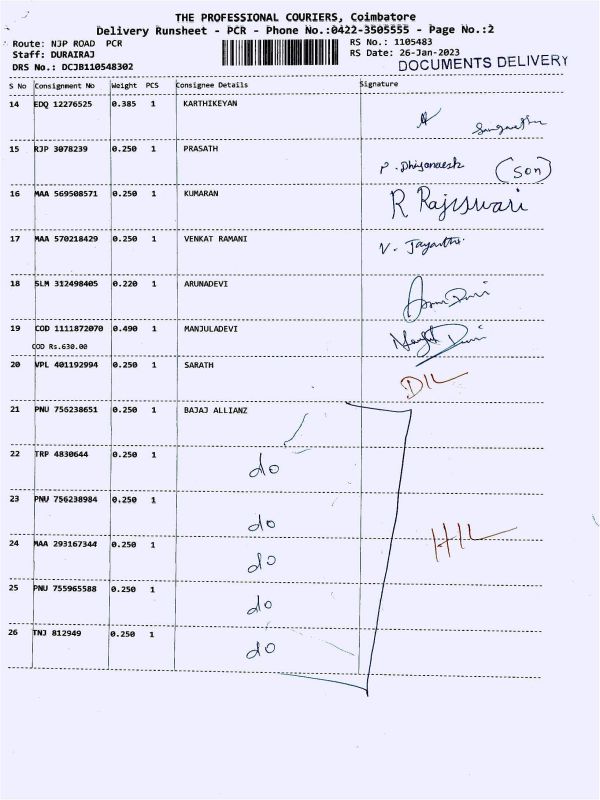 THE PROFESSIONAL COURIERS, Coimbatore
Delivery Runsheet - PCR - Phone No.:0422-3505555 - Page No.:2
Route: NJP ROAD PCR RS No.: 1105483
Staff: DURAIRAJ RS Date: 26-Jan-2023
DRS No.: DCJB110548302 DOCUMENTS DELIVERY
S No Consignment No Weight PCS Consignee Details Signature
14 EDQ 12276525 0.385 1 KARTHIKEYAN
15 RJP 3078239 0.250 1 PRASATH
(Son)
16 MAA 569508571 0.250 1 KUMARAN R Rajeswari
17 MAA 570218429 0.250 1 VENKAT RAMANI V. Jayanthi
18 SLM 312498405 0.220 1 ARUNADEVI
19 COD 1111872070 0.490 1 MANJULADEVI
COD Rs.630.00
20 VPL 401192994 0.250 1 SARATH
DIL
21 PNU 756238651 0.250 1 BAJAJ ALLIANZ
22 TRP 4830644 0.250 1
do
23 PNU 756238984 0.250 1
do
HIL
24 MAA 293167344 0.250 1
do
25 PNU 755965588 0.250 1
do
26 TNJ 812949 0.250 1
do